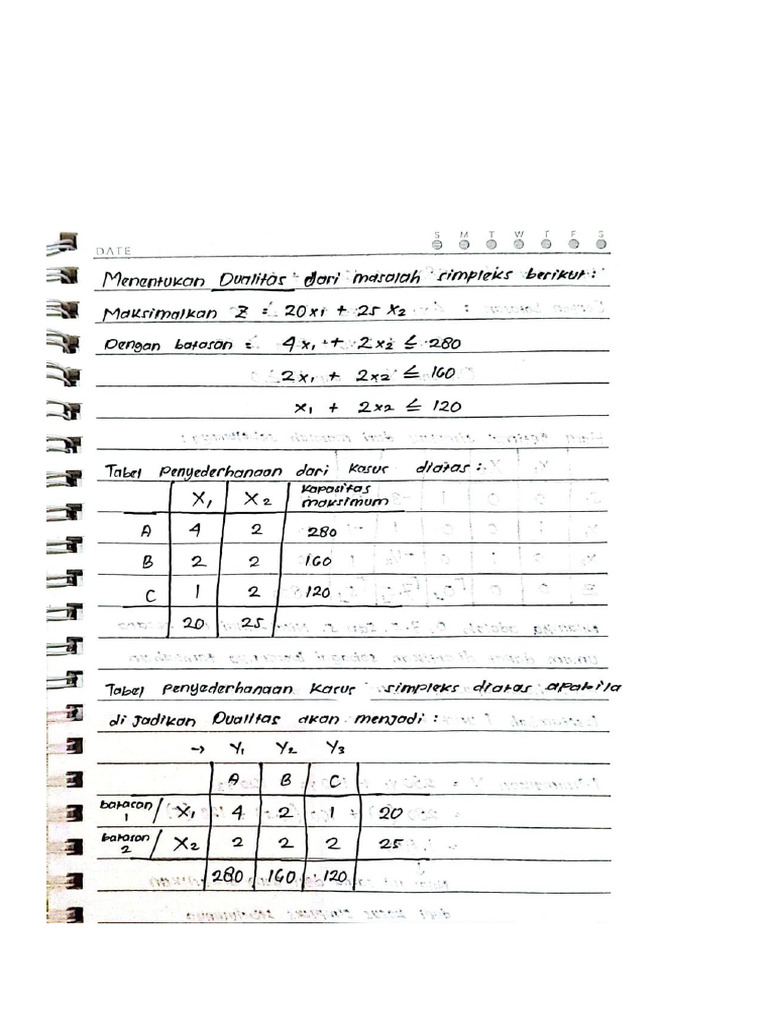 S M T W T F S
DATE
Menentukan Dualitas dari masalah simpleks berikut:
Maksimalkan Z = 20x1 + 25 X2
Dengan batasan = 4x1 + 2x2 ≤ 280
2x1 + 2x2 ≤ 160
x1 + 2x2 ≤ 120
Tabel Penyederhanaan dari kasus diatas:
X1 X2 Kapasitas maksimum
A 4 2 280
B 2 2 160
C 1 2 120
20 25
Tabel Penyederhanaan Kasus simpleks diatas apabila
di jadikan Dualitas akan menjadi:
→ Y1 Y2 Y3
A B C
batasan 1 / X1 4 2 1 20
batasan 2 / X2 2 2 2 25
280 160 120